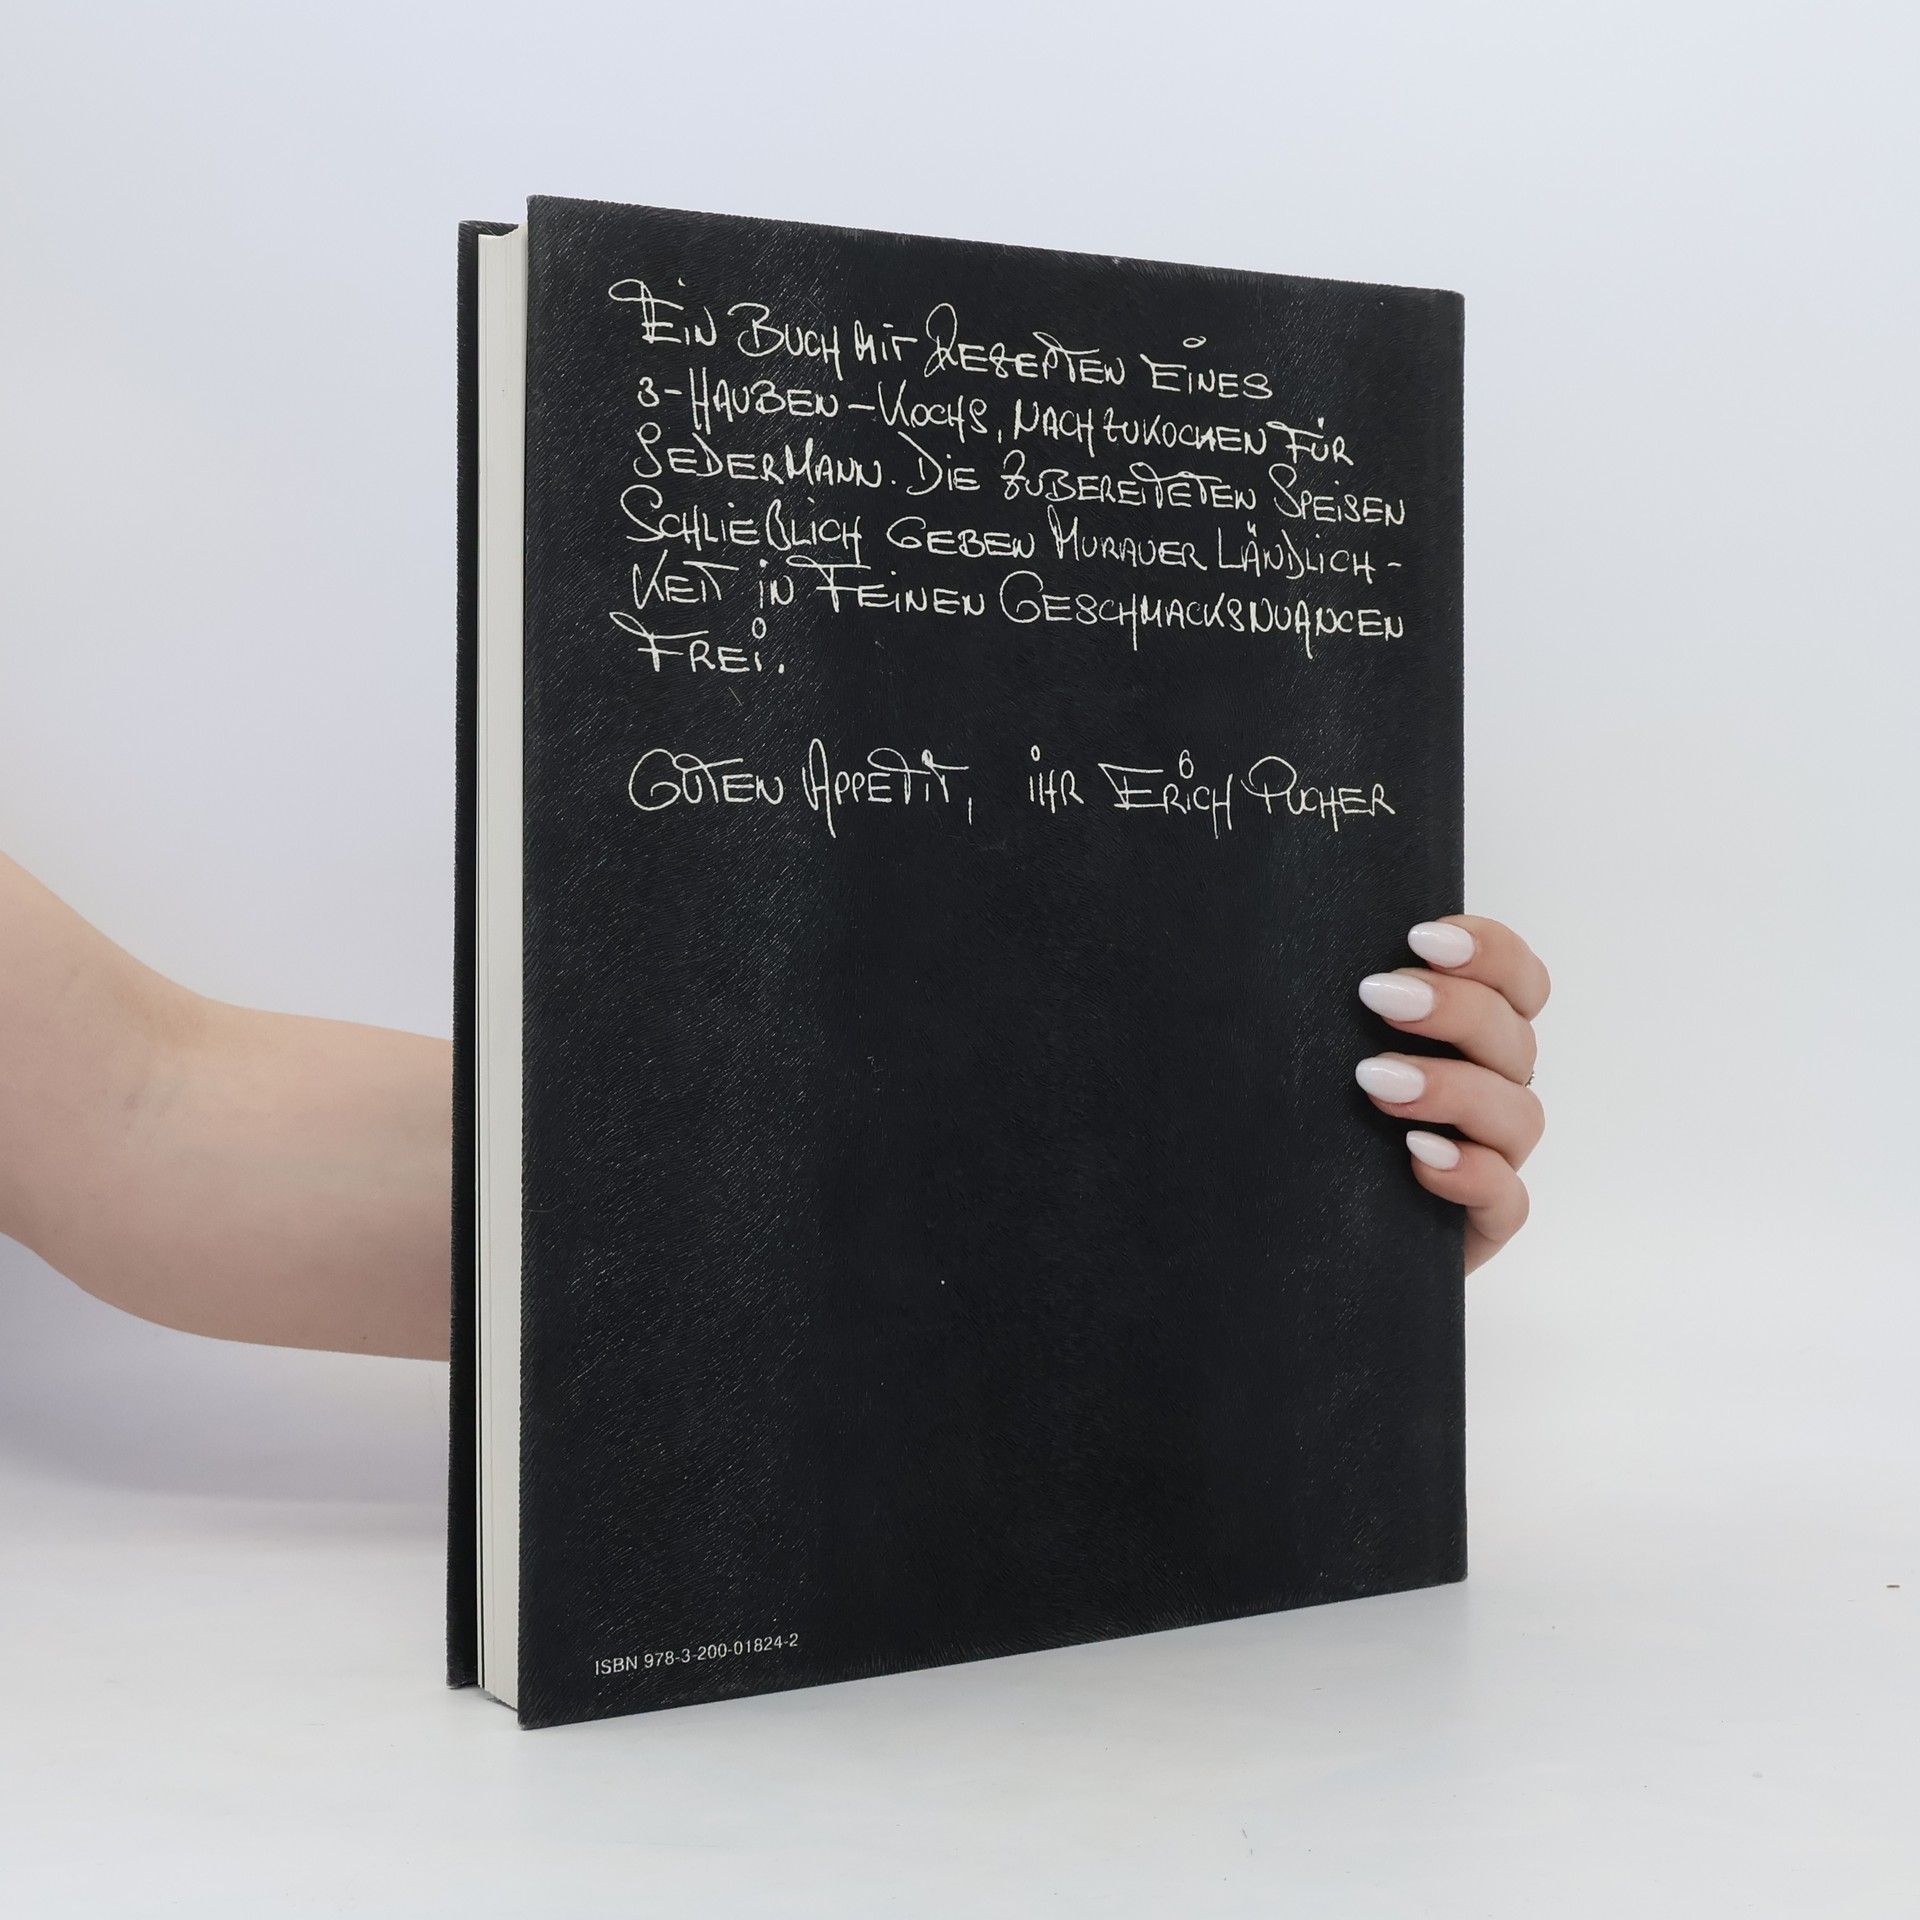 Ein Buch mit Rezepten eines
3-Hauben-Kochs, nachzukochen für
Jedermann. Die zubereiteten Speisen
schließlich geben Murauer Ländlich-
keit in feinen Geschmacksnuancen
frei.
Guten Appetit, ihr Erich Pucher
ISBN 978-3-200-01824-2